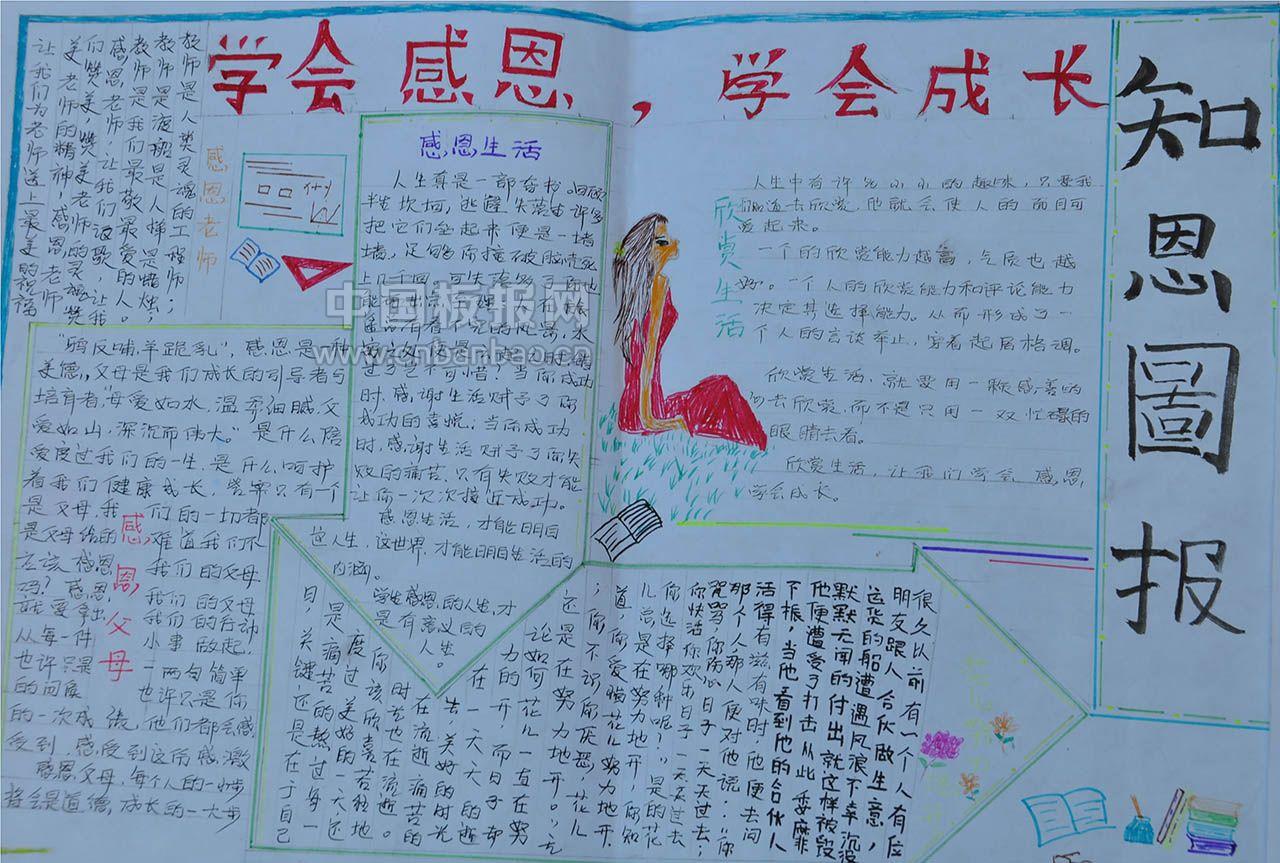 学会感恩，学会成长
知恩圖报
教师是人类灵魂的工程师；
教师是渡船是人梯是蜡烛；
教师是我们最敬最爱的人。
感恩老师，让我们讴歌，让我
们赞美，赞美老师的灵魂，赞
美老师的精神。感恩老师
让我们为老师送上最美的祝福
感恩老师
感恩生活
人生真是一部奇书。回顾
半生坎坷，逃避失落由许多
把它们垒起来便是一堵
墙，足够
时，感谢生活赋予了你
成功的喜悦；当你成功
时，感谢生活赋予了你失
败的痛苦。只有失败才能
让你一次次接近成功。
感恩生活，才能明白
这人生，这世界，才能明白生活的
内涵。
学生感恩的人生，才
是有意义的
人生。
欣赏生活
人生中有许多小小的趣味，只要我
们知道去欣赏，他就会使人的面目可
爱起来。
一个的欣赏能力越高，气质也越
好。一个人的欣赏能力和评论能力
决定其选择能力。从而形成了一
个人的言谈举止，穿着起居格调。
欣赏生活，就要用一颗感善的
心去欣赏，而不是只用一双忙碌的
眼睛去看。
欣赏生活，让我们学会感恩，
学会成长。
"鸦反哺，羊跪乳"，感恩是一种
美德，父母是我们成长的引导者与
培育者，"母爱如水，温柔细腻，父
爱如山，深沉而伟大。"是什么陪
爱度过我们的一生，是什么呵护
着我们健康成长，答案只有一个
是父母，我们的一切都
是父母给的，难道我们不
应该感恩我们的父母
吗？感恩我们的父母
就要拿出我们的行动
从每一件小事做起，
也许只是一两句简单
的问候也许只是你
的一次成绩，他们都会感
受到，感受到这份感激
感恩父母，每个人的一小步
将会是道德，成长的一大步
感恩父母
很久以前有一个人有位
朋友跟人合伙做生意，
运货的船遭遇风浪不幸沉没
默默无闻的付出就这样被毁
他便遭受了打击从此委靡
不振，当他看到他的合伙人
活得有滋有味时他便去问
那个人，那人便对他说："你
咒骂，你伤心日子一天天过去；
你快活，你欢乐日子一天天过去
你选择哪种呢？"是的花
儿总是在努力地开，你知
道，你爱瞄花儿努力地开
；你不识，你厌恶，花儿
还是在努力地开。"无
论如何，花儿一直在努
力的开，而日子却
在一天天的逝
去，美好的时光
在流逝，痛苦的
时光也在流逝。
你该欣喜若狂地
度过美好的一天，还
是痛苦的熬过每一
日，关键还是在于自己
中国板报网
www.cnbanbao.cn